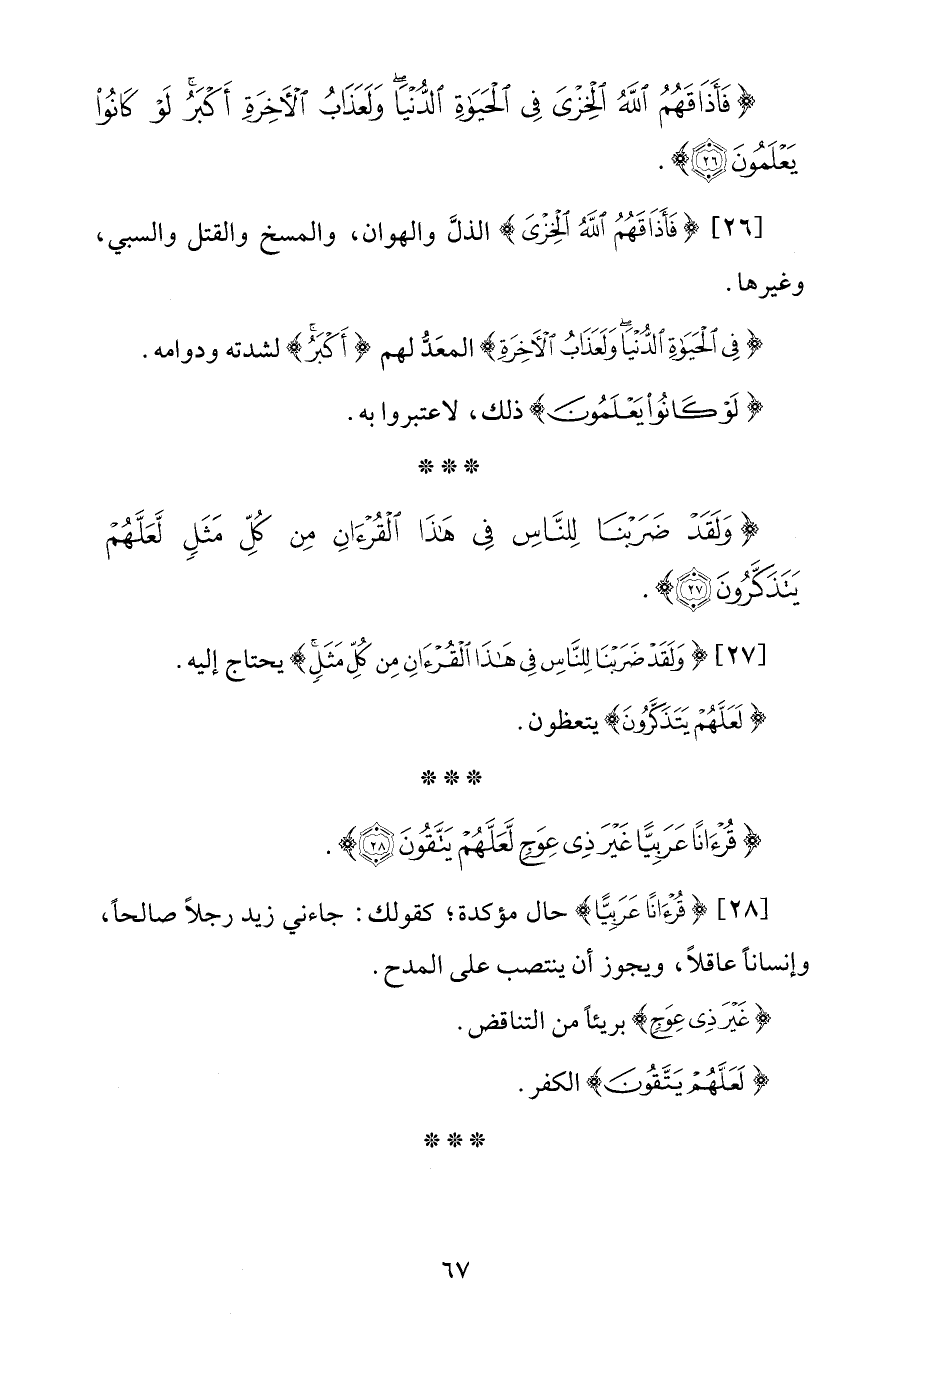 ﴿فَأَذَاقَهُمُ ٱللَّهُ ٱلْخِزْىَ فِى ٱلْحَيَوٰةِ ٱلدُّنْيَاۖ وَلَعَذَابُ ٱلْأَخِرَةِ أَكْبَرُۚ لَوْ كَانُوا۟
يَعْلَمُونَ ٢٦﴾ .
[٢٦] ﴿فَأَذَاقَهُمُ ٱللَّهُ ٱلْخِزْىَ﴾ الذلَّ والهوان، والمسخ والقتل والسبي،
وغيرها .
﴿فِى ٱلْحَيَوٰةِ ٱلدُّنْيَاۖ وَلَعَذَابُ ٱلْأَخِرَةِ﴾ المعَدُّ لهم ﴿أَكْبَرُۚ﴾ لشدته ودوامه .
﴿لَوْ كَانُوا۟ يَعْلَمُونَ﴾ ذلك، لاعتبروا به .
***
﴿وَلَقَدْ ضَرَبْنَا لِلنَّاسِ فِى هَٰذَا ٱلْقُرْءَانِ مِن كُلِّ مَثَلٍ لَّعَلَّهُمْ
يَتَذَكَّرُونَ ٢٧﴾ .
[٢٧] ﴿وَلَقَدْ ضَرَبْنَا لِلنَّاسِ فِى هَٰذَا ٱلْقُرْءَانِ مِن كُلِّ مَثَلٍۚ﴾ يحتاج إليه .
﴿لَعَلَّهُمْ يَتَذَكَّرُونَ﴾ يتعظون .
***
﴿قُرْءَانًا عَرَبِيًّا غَيْرَ ذِى عِوَجٍ لَّعَلَّهُمْ يَتَّقُونَ ٢٨﴾ .
[٢٨] ﴿قُرْءَانًا عَرَبِيًّا﴾ حال مؤكدة؛ كقولك : جاءني زيد رجلاً صالحاً،
وإنساناً عاقلاً، ويجوز أن ينتصب على المدح .
﴿غَيْرَ ذِى عِوَجٍ﴾ بريئاً من التناقض .
﴿لَعَلَّهُمْ يَتَّقُونَ﴾ الكفر .
***
٦٧